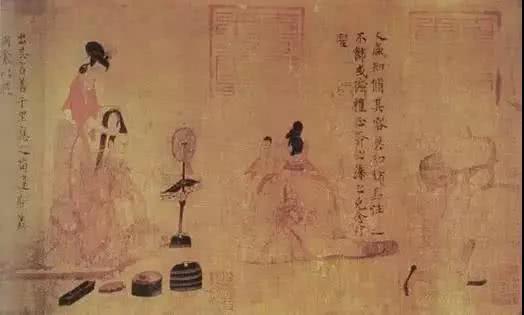 人咸知脩其容莫知飾其性
不飾或愆禮正斧之藻之克念作
聖
出其言善千里應之苟違斯義
同衾以疑